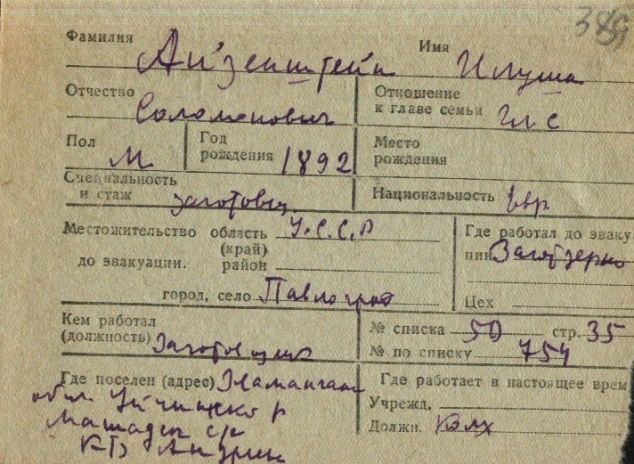 386
Фамилия Айзенштейн Имя Илуша
Отчество Соломонович Отношение к главе семьи Глс
Пол М Год рождения 1892 Место рождения
Специальность и стаж заготовщ. Национальность евр
Местожительство область У.С.С.Р Где работал до эваку
(край) ции Заготзерно
до эвакуации. район
город, село Павлоград Цех
Кем работал № списка 50 стр. 35
(должность) Заготовщик № по списку 754
Где поселен (адрес) Наманган Где работает в настоящее врем
обл. Уйчинско р Учрежд.
Машадск с/с Должн. Колх
к-з